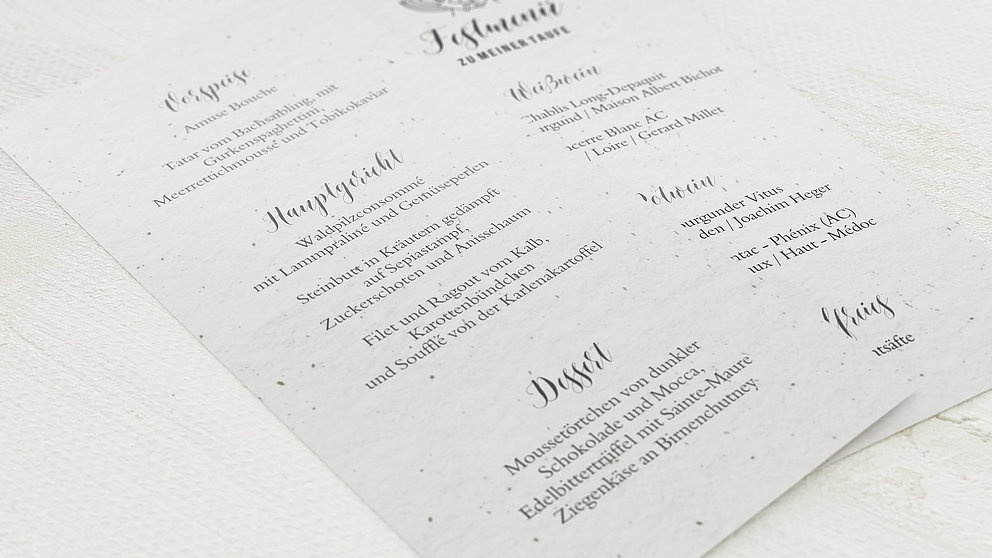 Festmenü
ZU MEINER TAUFE
Vorspeise
Amuse Bouche
Tatar vom Bachsaibling, mit
Gurkenspaghettini,
Meerrettichmousse und Tobikokaviar
Hauptgericht
Waldpilzconsommé
mit Lammpraliné und Gemüseperlen
Steinbutt in Kräutern gedämpft
auf Sepiastampf,
Zuckerschoten und Anisschaum
Filet und Ragout vom Kalb,
Karottenbündchen
und Soufflé von der Karlenakartoffel
Dessert
Moussetörtchen von dunkler
Schokolade und Mocca,
Edelbittertrüffel mit Sainte-Maure
Ziegenkäse an Birnenchutney
Weißwein
Chablis Long-Depaquit
urgund / Maison Albert Bichot
ncerre Blanc AC
/ Loire / Gerard Millet
otwein
urgunder Vitus
den / Joachim Heger
ntac - Phénix (AC)
ux / Haut - Médoc